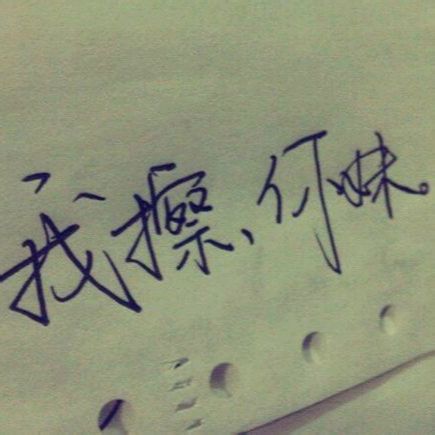 我擦、你妹。